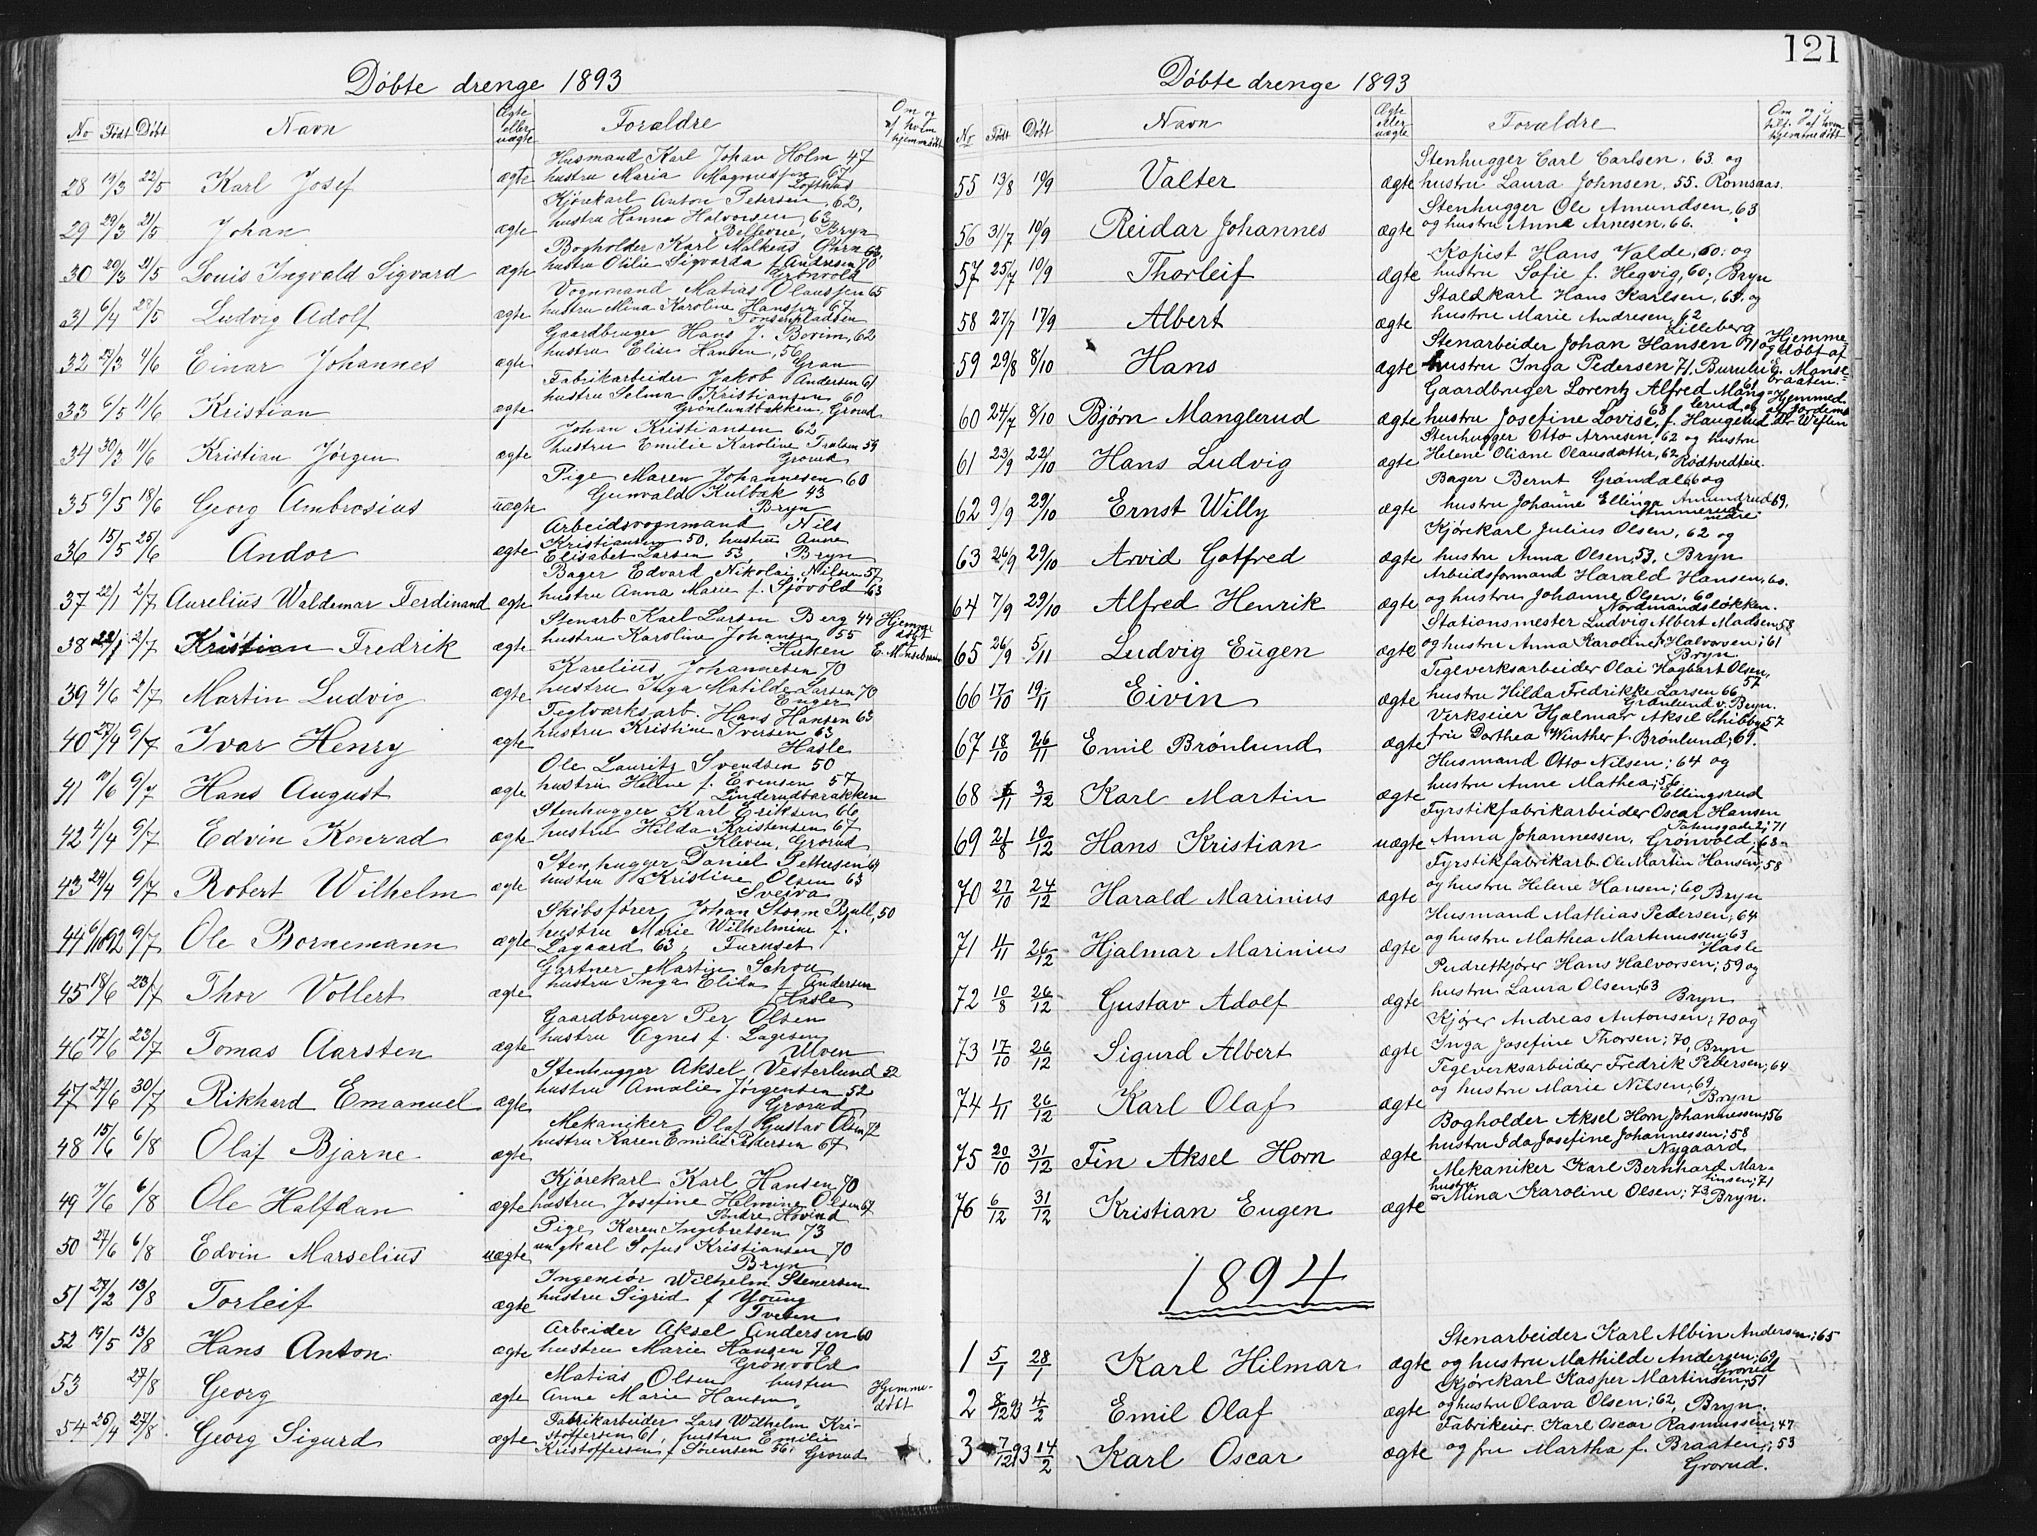 121
Døbte drenge 1893
No Født Døbt Navn Ægte eller uægte Forældre Om og af hvem hjemmedøbt
28 19/3 22/5 Karl Josef ægte Husmand Karl Johan Holm 47
hustru Maria Magnussen 67
Lofthus
29 29/3 21/5 Johan ægte Kjørekarl Anton Petersen, 62,
hustru Hanna Halvorsen, 63
Bellevue, Bryn
30 20/3 21/5 Louis Ingvald Sigvard ægte Bogholder Karl Malkeus Øhrn 66,
hustru Otilie Sigvarda f. Andersen 70
Grønvold
31 6/4 28/5 Ludvig Adolf ægte Vognmand Matias Olaussen 65
hustru Mina Karoline Hansen 67
Tonsenpladsen
32 27/3 4/6 Einar Johannes ægte Gaardbruger Hans J. Borim, 62
hustru Elise Hansen, 56
Gran
33 6/5 11/6 Kristian ægte Fabrikarbeider Jakob Andersen 61
hustru Selma Kristiansen 60
Grønlundbakken, Grorud
34 30/3 11/6 Kristian Jørgen ægte Johan Kristiansen 62
hustru Emilie Karoline 59
Grorud
35 9/5 18/6 Georg Ambrosius uægte Pige Maren Johannesen 60
Gunvald Kulbæk 43
Bryn
36 15/5 25/6 Andor ægte Arbeidsvognmand Nils
Kristiansen 50, hustru Anne
Elisabet Larsen 53, Bryn
37 22/1 2/7 Aurelius Waldemar Ferdinand ægte Bager Edvard Nikolai Nilsen 57,
hustru Anna Marie f. Sjøvold 63
38 22/1 2/7 Kristian Fredrik ægte Stenarb Karl Larsen Berg 44 Hjemme
hustru Karoline Johansen 55 døbt
Huken
39 4/6 2/7 Martin Ludvig ægte Karelius Johannesen 70
hustru Inga Matilde Larsen 70
Enger
40 27/4 9/7 Ivar Henry ægte Teglværksarb. Hans Hansen 63
hustru Kristine Iversen 63
Hasle
41 10/6 9/7 Hans August ægte Ole Lauritz Svendsen 50
hustru Helene f. Evensen 57
Linderudbarakken
42 4/4 9/7 Edvin Konrad ægte Stenhugger Karl Eriksen 66
hustru Hilda Kristensen 67
Kleven, Grorud
43 24/4 9/7 Robert Wilhelm ægte Stenhugger Daniel Pettersen 64
hustru Kristine Olsen 63
Sveiva
44 6/10 92 9/7 Ole Bornemann ægte Skibsfører Johan Strøm Bull, 50
hustru Marie Wilhelmine f.
Lagaard 63, Furuset
45 18/6 23/7 Thor Vollert ægte Gartner Martin Schou
hustru Inga Elida f. Andersen
Hasle
46 17/6 23/7 Tomas Aarsten ægte Gaardbruger Per Olsen
hustru Agnes f. Lagesen
Ulven
47 27/6 30/7 Rikhard Emanuel ægte Stenhugger Aksel Vesterlund 52
hustru Amalie Jørgensen 52
Grorud
48 15/6 6/8 Olaf Bjarne ægte Mekaniker Olaf Gustav Olsen 72
hustru Karen Emilie Pedersen 67
49 7/6 6/8 Ole Halfdan ægte Kjørekarl Karl Hansen 70
hustru Josefine Helmine Olsen 67
Søndre Hovind
50 27/6 6/8 Edvin Marselius uægte Pige Karen Ingebretsen 73
ungkarl Sofus Kristiansen 70
Bryn
51 27/2 13/8 Torleif ægte Ingeniør Wilhelm Stenersen
hustru Sigrid f Young
Tveten
52 19/5 13/8 Hans Anton ægte Arbeider Aksel Andersen 60
hustru Marie Hansen 70
Grønvold
53 27/8 Georg ægte Matias Olsen hustru
Anne Marie Hansen Hjemmedøbt
54 26/4 27/8 Georg Sigurd ægte Fabrikarbeider Lars Wilhelm Kri-
stoffersen 61, hustru Emilie
Kristoffersen f Sørensen 56, Grorud
Døbte drenge 1893
No Født Døbt Navn Ægte eller uægte Forældre
55 13/8 10/9 Valter ægte Stenhugger Carl Carlsen, 63 og
hustru Laura Johnsen, 55. Romsaas.
56 31/7 10/9 Reidar Johannes ægte Stenhugger Ole Amundsen, 63
og hustru Anna Arnesen, 66.
57 25/7 10/9 Thorleif ægte Kopist Hans Valde, 60; og
hustru Sofie f. Hegvig, 60; Bryn
58 27/7 17/9 Albert ægte Staldkarl Hans Karlsen, 69, og
hustru Marie Andresen, 62
Lilleberg
59 29/8 8/10 Hans ægte Stenarbeider Johan Hansen 71 og Hjemme-
hustru Inga Pedersen 71. døbt af
60 24/7 8/10 Bjørn Manglerud ægte Gaardbruger Lorentz Alfred Mang- 61
lerud og Hjemmed.
hustru Josefine Lovise, 68 f. Haugerud af Jordem.
61 23/9 22/10 Hans Ludvig ægte Stenhugger Otto Arnesen, 62 og hustru
Helene Oliane Olausdatter, 62 Rødtvedteie.
62 9/9 29/10 Ernst Willy ægte Bager Bernt Grøndal 66 og
hustru Johanne Ellinga Amundrud 69.
63 26/9 29/10 Arvid Gotfred ægte Kjørekarl Julius Olsen, 62 og
hustru Anna Olsen, 53. Bryn
64 7/9 29/10 Alfred Henrik ægte Arbeidsformand Harald Hansen, 60.
og hustru Johanne Olsen, 60
Nordmandsløkken.
65 26/9 5/11 Ludvig Eugen ægte Stationsmester Ludvig Albert Madsen, 58
og hustru Anna Karoline Halvorsen; 61
Bryn
66 17/10 19/11 Eivin ægte Teglverksarbeider Olai Hagbart Olsen,
57
hustru Hilda Fredrikke Larsen 66
Grønlund v. Bryn.
67 18/10 26/11 Emil Brønlund ægte Verkseier Hjalmar Aksel Schibbye 57
fru Dorthea Winther f. Brønlund; 69.
68 5/11 3/12 Karl Martin ægte Husmand Otto Nilsen; 64 og
hustru Anne Mathea; 56
Ellingsrud
69 21/8 10/12 Hans Kristian uægte Fyrstikfabrikarbeider Oscar Hansen
71
Anna Johannessen, Grønvold; 68
70 27/10 24/12 Harald Marinius ægte Fyrstikfabrikarb. Ole Martin Hansen; 58
og hustru Helene Hansen; 60, Bryn
71 4/11 26/12 Hjalmar Marinius ægte Husmand Mathias Pedersen; 64
og hustru Mathea Martinussen; 63
Hasle
72 10/8 26/12 Gustav Adolf ægte Pudretkjører Hans Halvorsen; 59 og
hustru Laura Olsen; 63
Bryn
73 17/10 26/12 Sigurd Albert ægte Kjører Andreas Antonsen; 70 og
Inga Josefine Thorsen; 70, Bryn
74 1/11 26/12 Karl Olaf ægte Teglverksarbeider Fredrik Pedersen; 64
og hustru Marie Nilsen; 69
Bryn
75 20/10 31/12 Fin Aksel Horn ægte Bogholder Aksel Horn Johannessen; 56
hustru Ida Josefine Johannessen; 58
Nygaard
76 6/12 31/12 Kristian Eugen ægte Mekaniker Karl Bernhard Mar-
tinsen; 71
hustru Mina Karoline Olsen; 73, Bryn.
1894
1 5/1 28/1 Karl Hilmar ægte Stenarbeider Karl Albin Andersen; 65
og hustru Mathilde Andersen; 69
Grorud
2 8/12 93 4/2 Emil Olaf ægte Kjørekarl Kasper Martinsen; 51
og hustru Olava Olsen; 62, Bryn.
3 7/12 93 14/2 Karl Oscar ægte Fabrikeier Karl Oscar Rasmussen; 47
og fru Martha f. Braaten; 53
Grorud.